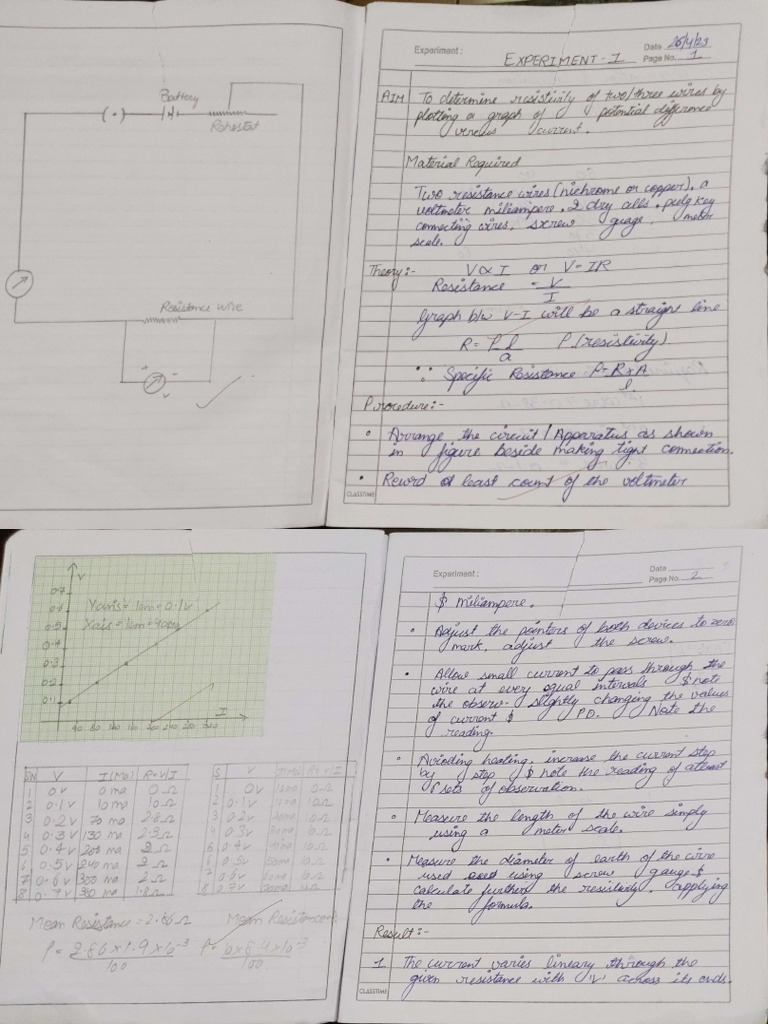 Battery
(•)
Rohestat
Resistance wire
+ -
V
Experiment :
Date 26/4/23
Page No. 1
EXPERIMENT-1
AIM To determine resistivity of two/three wires by
plotting a graph of potential difference
versus current.
Material Required
Two resistance wires (nichrome or copper), a
voltmeter miliampere, 2 dry cells, plug key
connecting wires, screw guage, meter
scale.
Theory:- V ∝ I or V = IR
Resistance = V
I
Graph b/w V-I will be a straight line
R = P l P (resistivity)
a
∵ Specific Resistance P = R x A
l
Procedure:-
• Arrange the circuit / Apparatus as shown
in figure beside making tight connection.
• Reword of least count of the voltmeter
CLASSTIME
V
0.7
0.6
Yaxis = 1cm = 0.1v
0.5
Xaxis = 1cm = 40ma
0.4
0.3
0.2
0.1
I
SN V I(Ma) R=V/I
1 0V 0 ma 0Ω
2 0.1V 10 ma 10Ω
3 0.2V 70 ma 2.8Ω
4 0.3V 130 ma 2.3Ω
5 0.4V 200 ma 2Ω
6 0.5V 240 ma 2Ω
7 0.6V 300 ma 2Ω
8 0.7V 380 ma 1.8Ω
S V R=V/I
1 0V 0Ω
2 0.1V 10Ω
3 0.2V 10Ω
4 0.3V 10Ω
0.4V 10Ω
0.5V 10Ω
0.6V 10Ω
8 0.7V 10Ω
Mean Resistance = 2.86Ω
Mean Resistance
P = 2.86 x 1.9 x 10-3
100
P = 10 x 8.4 x 10-3
100
Experiment :
Date
Page No. 2
$ miliampere.
• Adjust the pointers of both devices to zero
mark, adjust the screw.
• Allow small current to pass through the
wire at every equal intervals $ note
the observ- slightly changing the values
of current $ PD. Note the
reading.
• Avioding heating, increase the current step
by step $ note the reading of atleast
6 sets of observation.
• Measure the length of the wire simply
using a meter scale.
• Measure the diameter of earth of the wire
used using screw gauge $
calculate further the resistivity. applying
the formula.
Result:-
1. The current varies lineary through the
given resistance with 'V' across its ends.
CLASSTIME